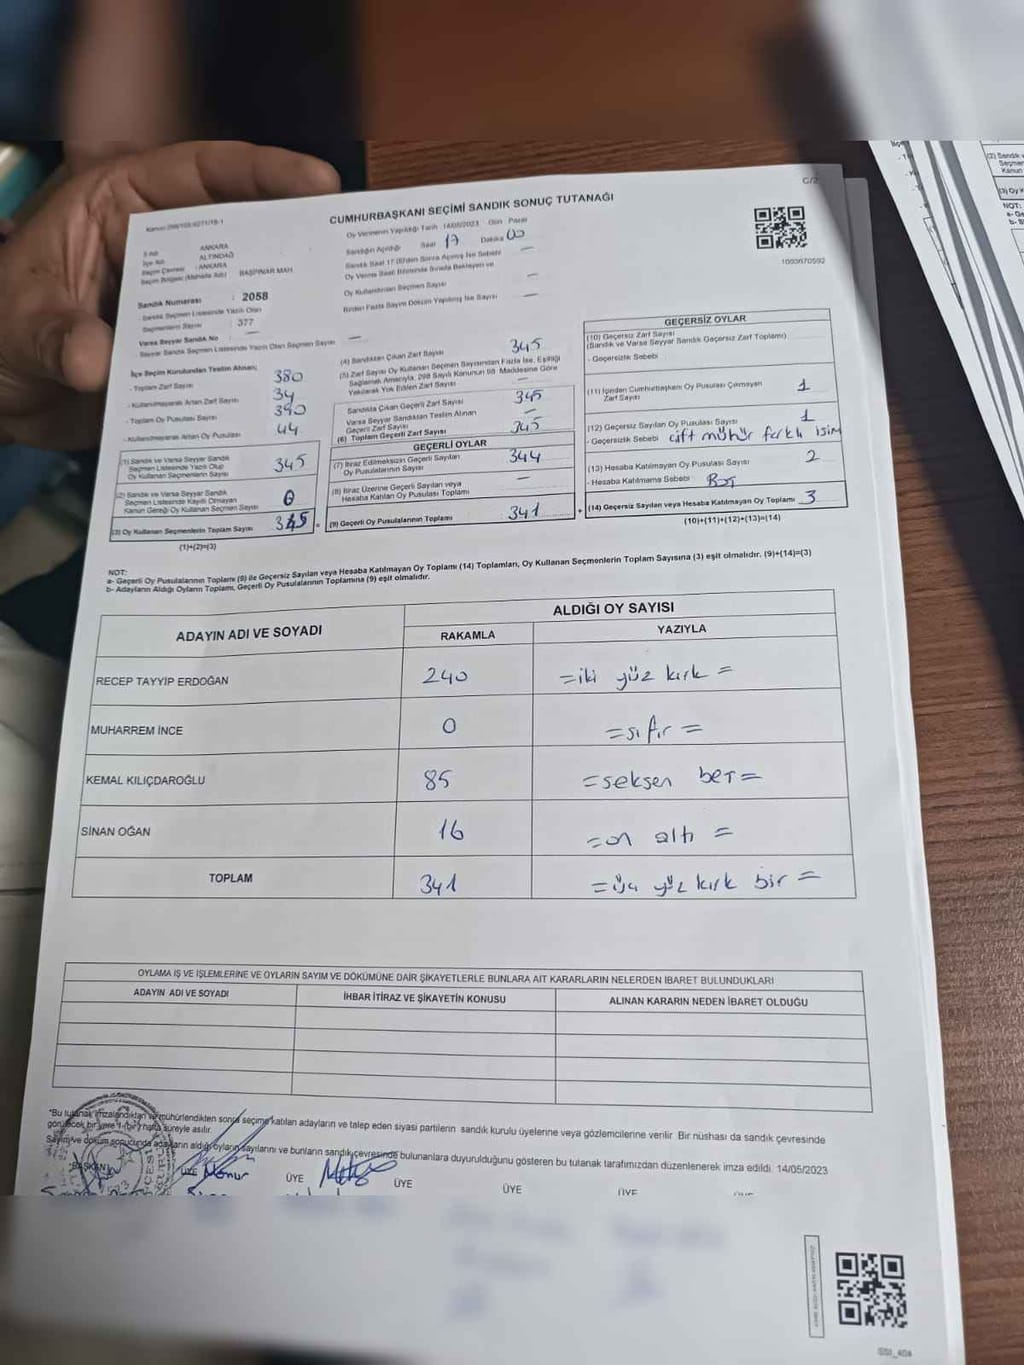 C/2
CUMHURBAŞKANI SEÇİMİ SANDIK SONUÇ TUTANAĞI
Oy Vermenin Yapıldığı Tarih 14/05/2023 Gün Pazar
Sandığın Açıldığı Saat 17 Dakika 00
Sandık Saat 17.00'den Sonra Açılmış İse Sebebi
Oy Verme Saati Bitiminde Sırada Bekleyen ve
Oy Kullandırılan Seçmen Sayısı —
Birden Fazla Sayım Döküm Yapılmış İse Sayısı —
1003670592
İl Adı ANKARA
İlçe Adı ALTINDAĞ
Seçim Çevresi : ANKARA
Seçim Bölgesi (Mahalle Adı) BAŞPINAR MAH.
Sandık Numarası : 2058
- Sandık Seçmen Listesinde Yazılı Olan
Seçmenlerin Sayısı : 377
Varsa Seyyar Sandık No —
- Seyyar Sandık Seçmen Listesinde Yazılı Olan Seçmen Sayısı —
İlçe Seçim Kurulundan Teslim Alınan;
- Toplam Zarf Sayısı 380
- Kullanılmayarak Artan Zarf Sayısı 34
- Toplam Oy Pusulası Sayısı 390
- Kullanılmayarak Artan Oy Pusulası 44
(1) Sandık ve Varsa Seyyar Sandık
Seçmen Listesinde Yazılı Olup
Oy Kullanan Seçmenlerin Sayısı 345
(2) Sandık ve Varsa Seyyar Sandık
Seçmen Listesinde Kayıtlı Olmayan
Kanun Gereği Oy Kullanan Seçmen Sayısı 0
(3) Oy Kullanan Seçmenlerin Toplam Sayısı 345
(1)+(2)=(3)
(4) Sandıktan Çıkan Zarf Sayısı 345
(5) Zarf Sayısı Oy Kullanan Seçmen Sayısından Fazla İse, Eşitliği
Sağlamak Amacıyla, 298 Sayılı Kanunun 98. Maddesine Göre
Yakılarak Yok Edilen Zarf Sayısı —
Sandıkta Çıkan Geçerli Zarf Sayısı 345
Varsa Seyyar Sandıktan Teslim Alınan
Geçerli Zarf Sayısı —
(6) Toplam Geçerli Zarf Sayısı 345
GEÇERLİ OYLAR
(7) İtiraz Edilmeksizin Geçerli Sayılan
Oy Pusulalarının Sayısı 344
(8) İtiraz Üzerine Geçerli Sayılan veya
Hesaba Katılan Oy Pusulası Toplamı —
(9) Geçerli Oy Pusulalarının Toplamı 341
GEÇERSİZ OYLAR
(10) Geçersiz Zarf Sayısı
(Sandık ve Varsa Seyyar Sandık Geçersiz Zarf Toplamı)
- Geçersizlik Sebebi
(11) İçinden Cumhurbaşkanı Oy Pusulası Çıkmayan
Zarf Sayısı 1
(12) Geçersiz Sayılan Oy Pusulası Sayısı 1
- Geçersizlik Sebebi çift mühür farklı isim
(13) Hesaba Katılmayan Oy Pusulası Sayısı 2
- Hesaba Katılmama Sebebi Boş
(14) Geçersiz Sayılan veya Hesaba Katılmayan Oy Toplamı 3
(10)+(11)+(12)+(13)=(14)
NOT:
a- Geçerli Oy Pusulalarının Toplamı (9) ile Geçersiz Sayılan veya Hesaba Katılmayan Oy Toplamı (14) Toplamları, Oy Kullanan Seçmenlerin Toplam Sayısına (3) eşit olmalıdır. (9)+(14)=(3)
b- Adayların Aldığı Oyların Toplamı, Geçerli Oy Pusulalarının Toplamına (9) eşit olmalıdır.
ADAYIN ADI VE SOYADI
ALDIĞI OY SAYISI
RAKAMLA YAZIYLA
RECEP TAYYİP ERDOĞAN 240 =iki yüz kırk =
MUHARREM İNCE 0 =sıfır =
KEMAL KILIÇDAROĞLU 85 =seksen beş=
SİNAN OĞAN 16 =on altı =
TOPLAM 341 =üç yüz kırk bir =
OYLAMA İŞ VE İŞLEMLERİNE VE OYLARIN SAYIM VE DÖKÜMÜNE DAİR ŞİKAYETLERLE BUNLARA AİT KARARLARIN NELERDEN İBARET BULUNDUKLARI
ADAYIN ADI VE SOYADI İHBAR İTİRAZ VE ŞİKAYETİN KONUSU ALINAN KARARIN NEDEN İBARET OLDUĞU
"Bu tutanak imzalandıktan ve mühürlendikten sonra seçime katılan adayların ve talep eden siyasi partilerin sandık kurulu üyelerine veya gözlemcilerine verilir. Bir nüshası da sandık çevresinde
görülecek bir yere 1 (bir) hafta süreyle asılır.
Sayım ve döküm sonucunda adayların aldığı oyların sayılarını ve bunların sandık çevresinde bulunanlara duyurulduğunu gösteren bu tutanak tarafımızdan düzenlenerek imza edildi. 14/05/2023
BAŞKAN ÜYE ÜYE ÜYE ÜYE ÜYE